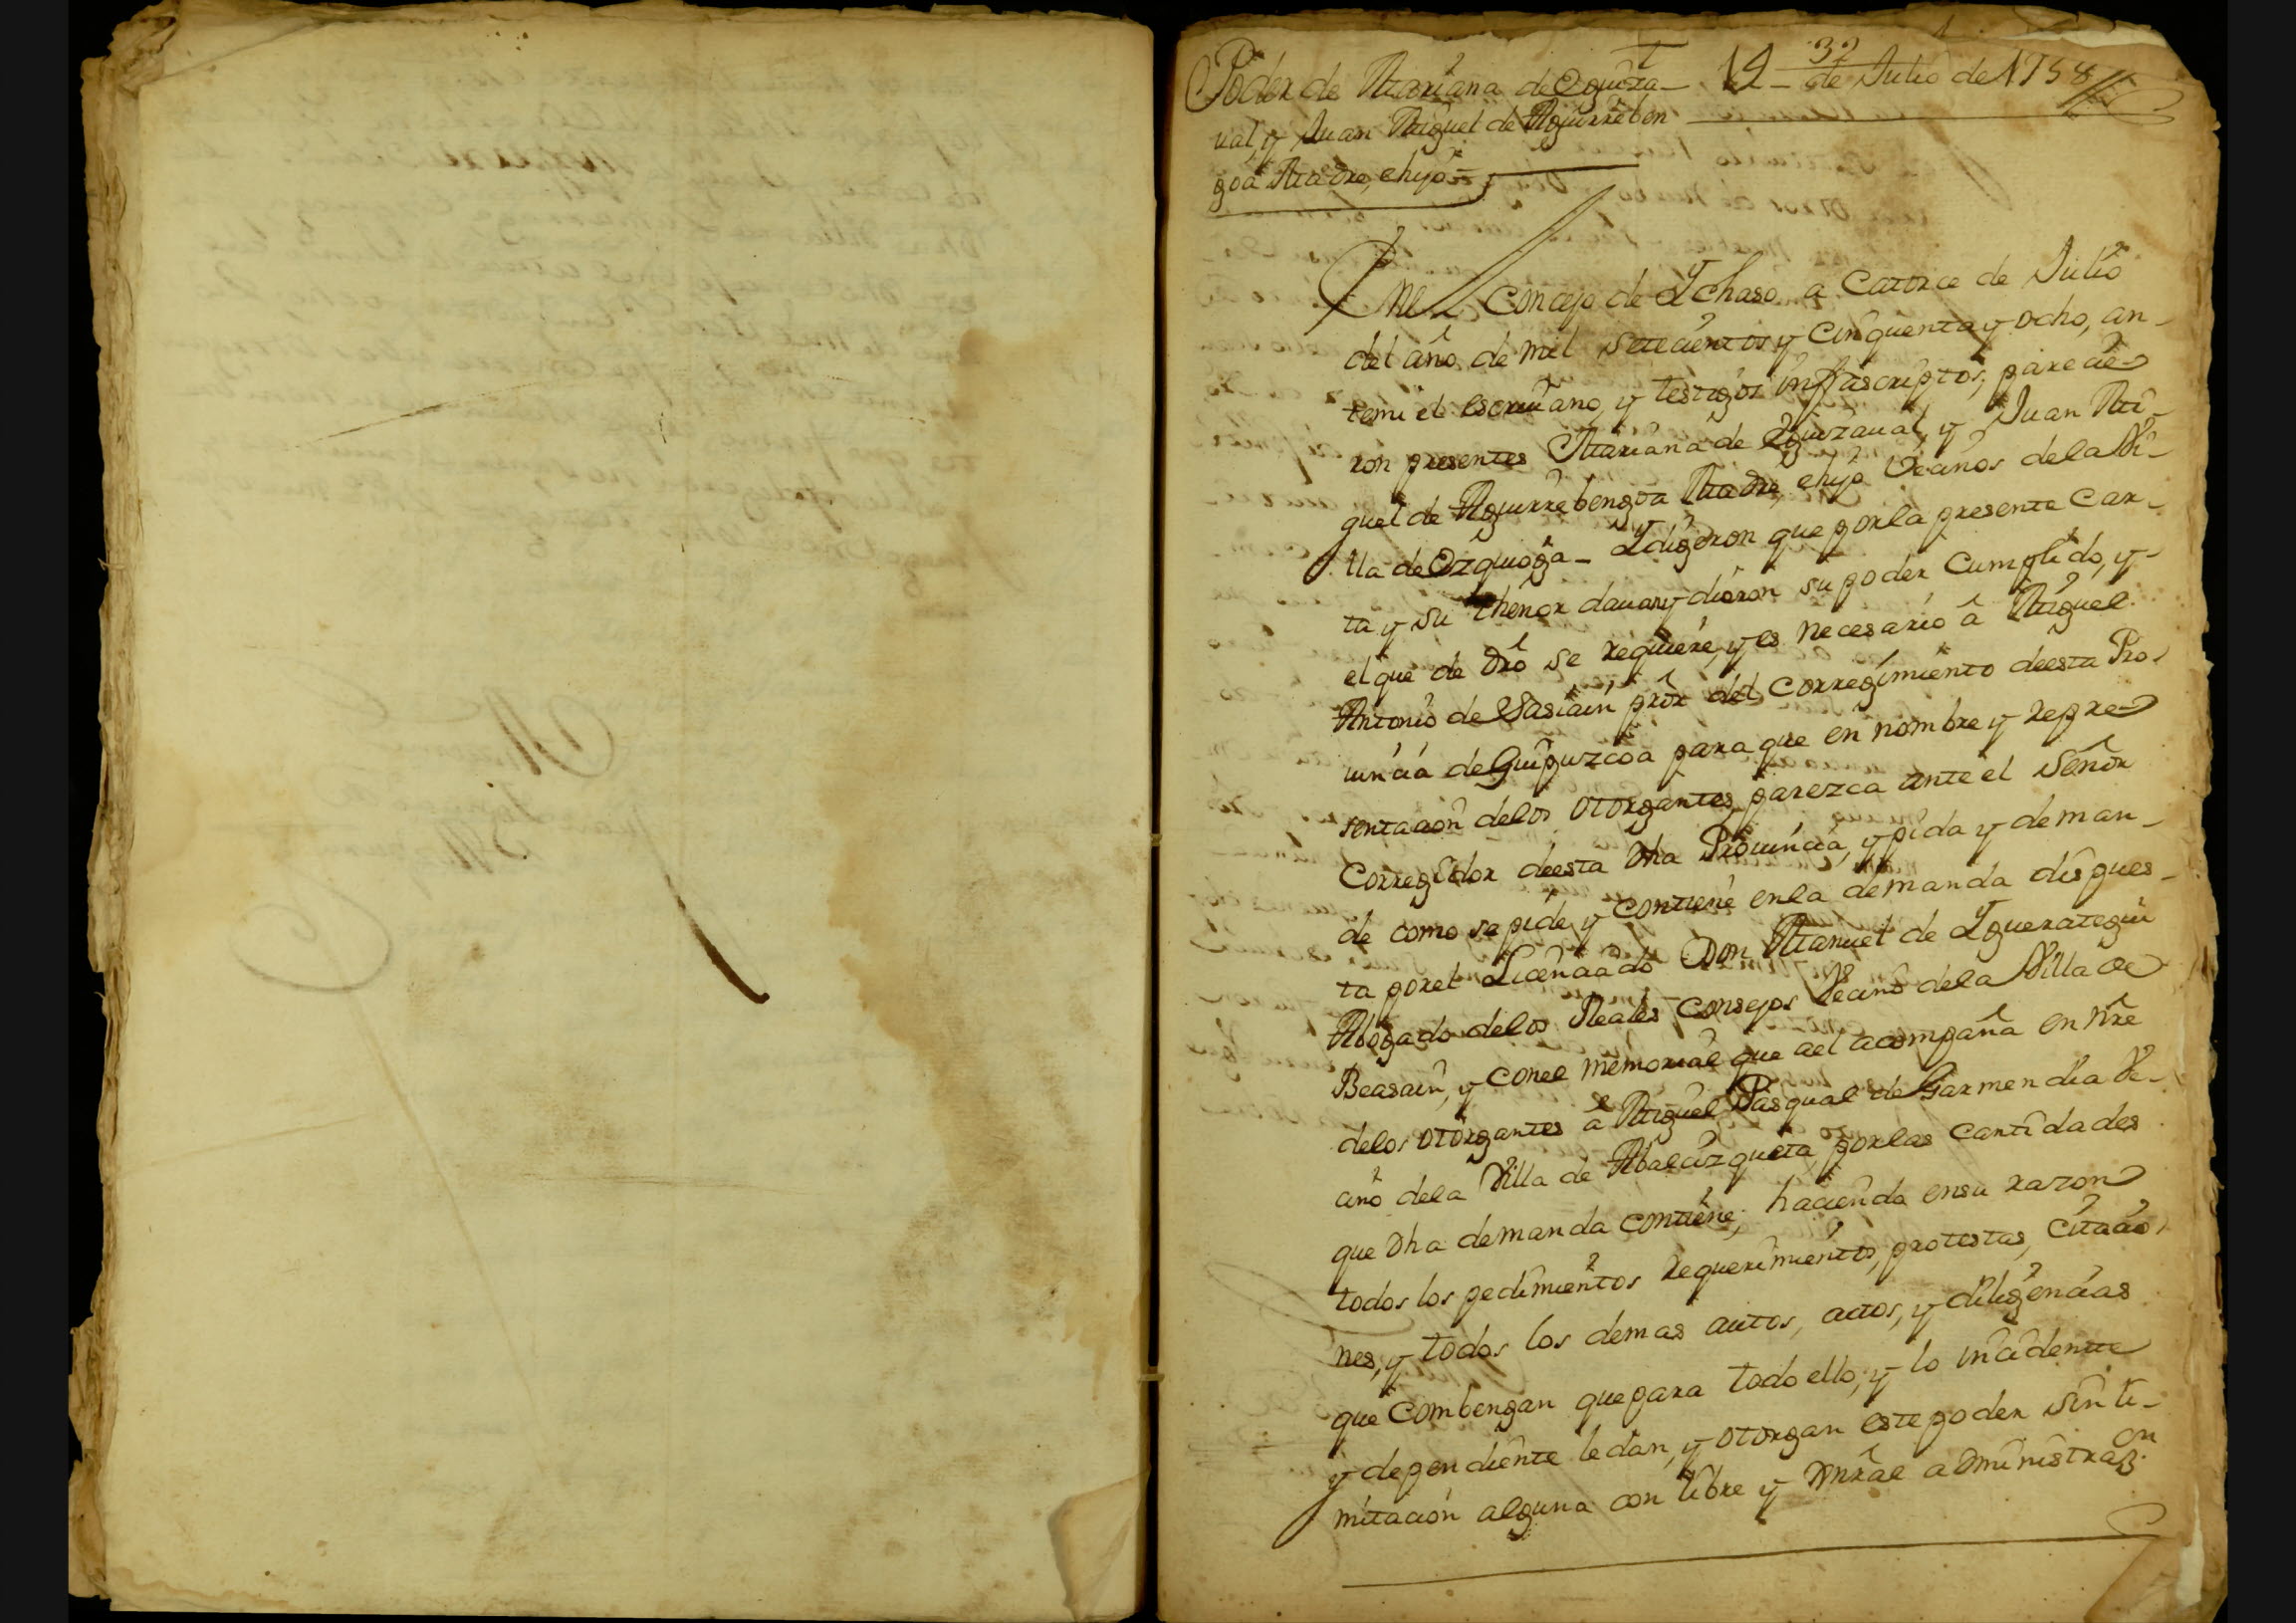 32
Poder de Mariana de Eguiza- 14 - de Julio de 1758
ual, y Juan Miguel de Aguirreben
goa Madre, e hijo =
En el Concejo de Ychaso a Catorce de Julio
del año de mil setecientos y Cinquenta y ocho, an-
temi el escriuano, y testigos infrascriptos, parecie-
ron presentes Mariana de Eguizaual, y Juan Mi-
guel de Aguirrebengoa Madre, e hijo Vecinos dela Vi-
lla de Ezquioga - Ydigeron que porla presente Car-
ta y su thenor dauan y dieron su poder Cumplido, y-
el que de dro se requiere, y es necesario â Miguel
Antonio de Sasiain prôr del Corregimiento deesta Pro-
uincia de Guipuzcoa para que en nombre y repre-
sentacion delos otorgantes, parezca ante el Señor
Corregidor deesta dha Prouincia, y pida y deman-
de como se pide, y contiene enla demanda dispues-
ta porel Licenciado Don Manuel de Yguerategui
Abogado delos Reales Consejos Vecino dela Villa de
Beasain, y conel memorial que ael acompaña en nre
delos otorgantes â Miguel Pasqual de Garmendia Ve-
cino dela Villa de Abalcizqueta, porlas cantidades
que dha demanda contiene; haciendo ensu razon
todos los pedimientos requerimientos, protestas, Citacio-
nes, y todos los demas autos, actos, y diligencias
que Combengan que para todo ello, y lo incidente
y dependiente le dan, y otorgan este poder sin li-
mitacion alguna con libre y Gnrâl administraz.on